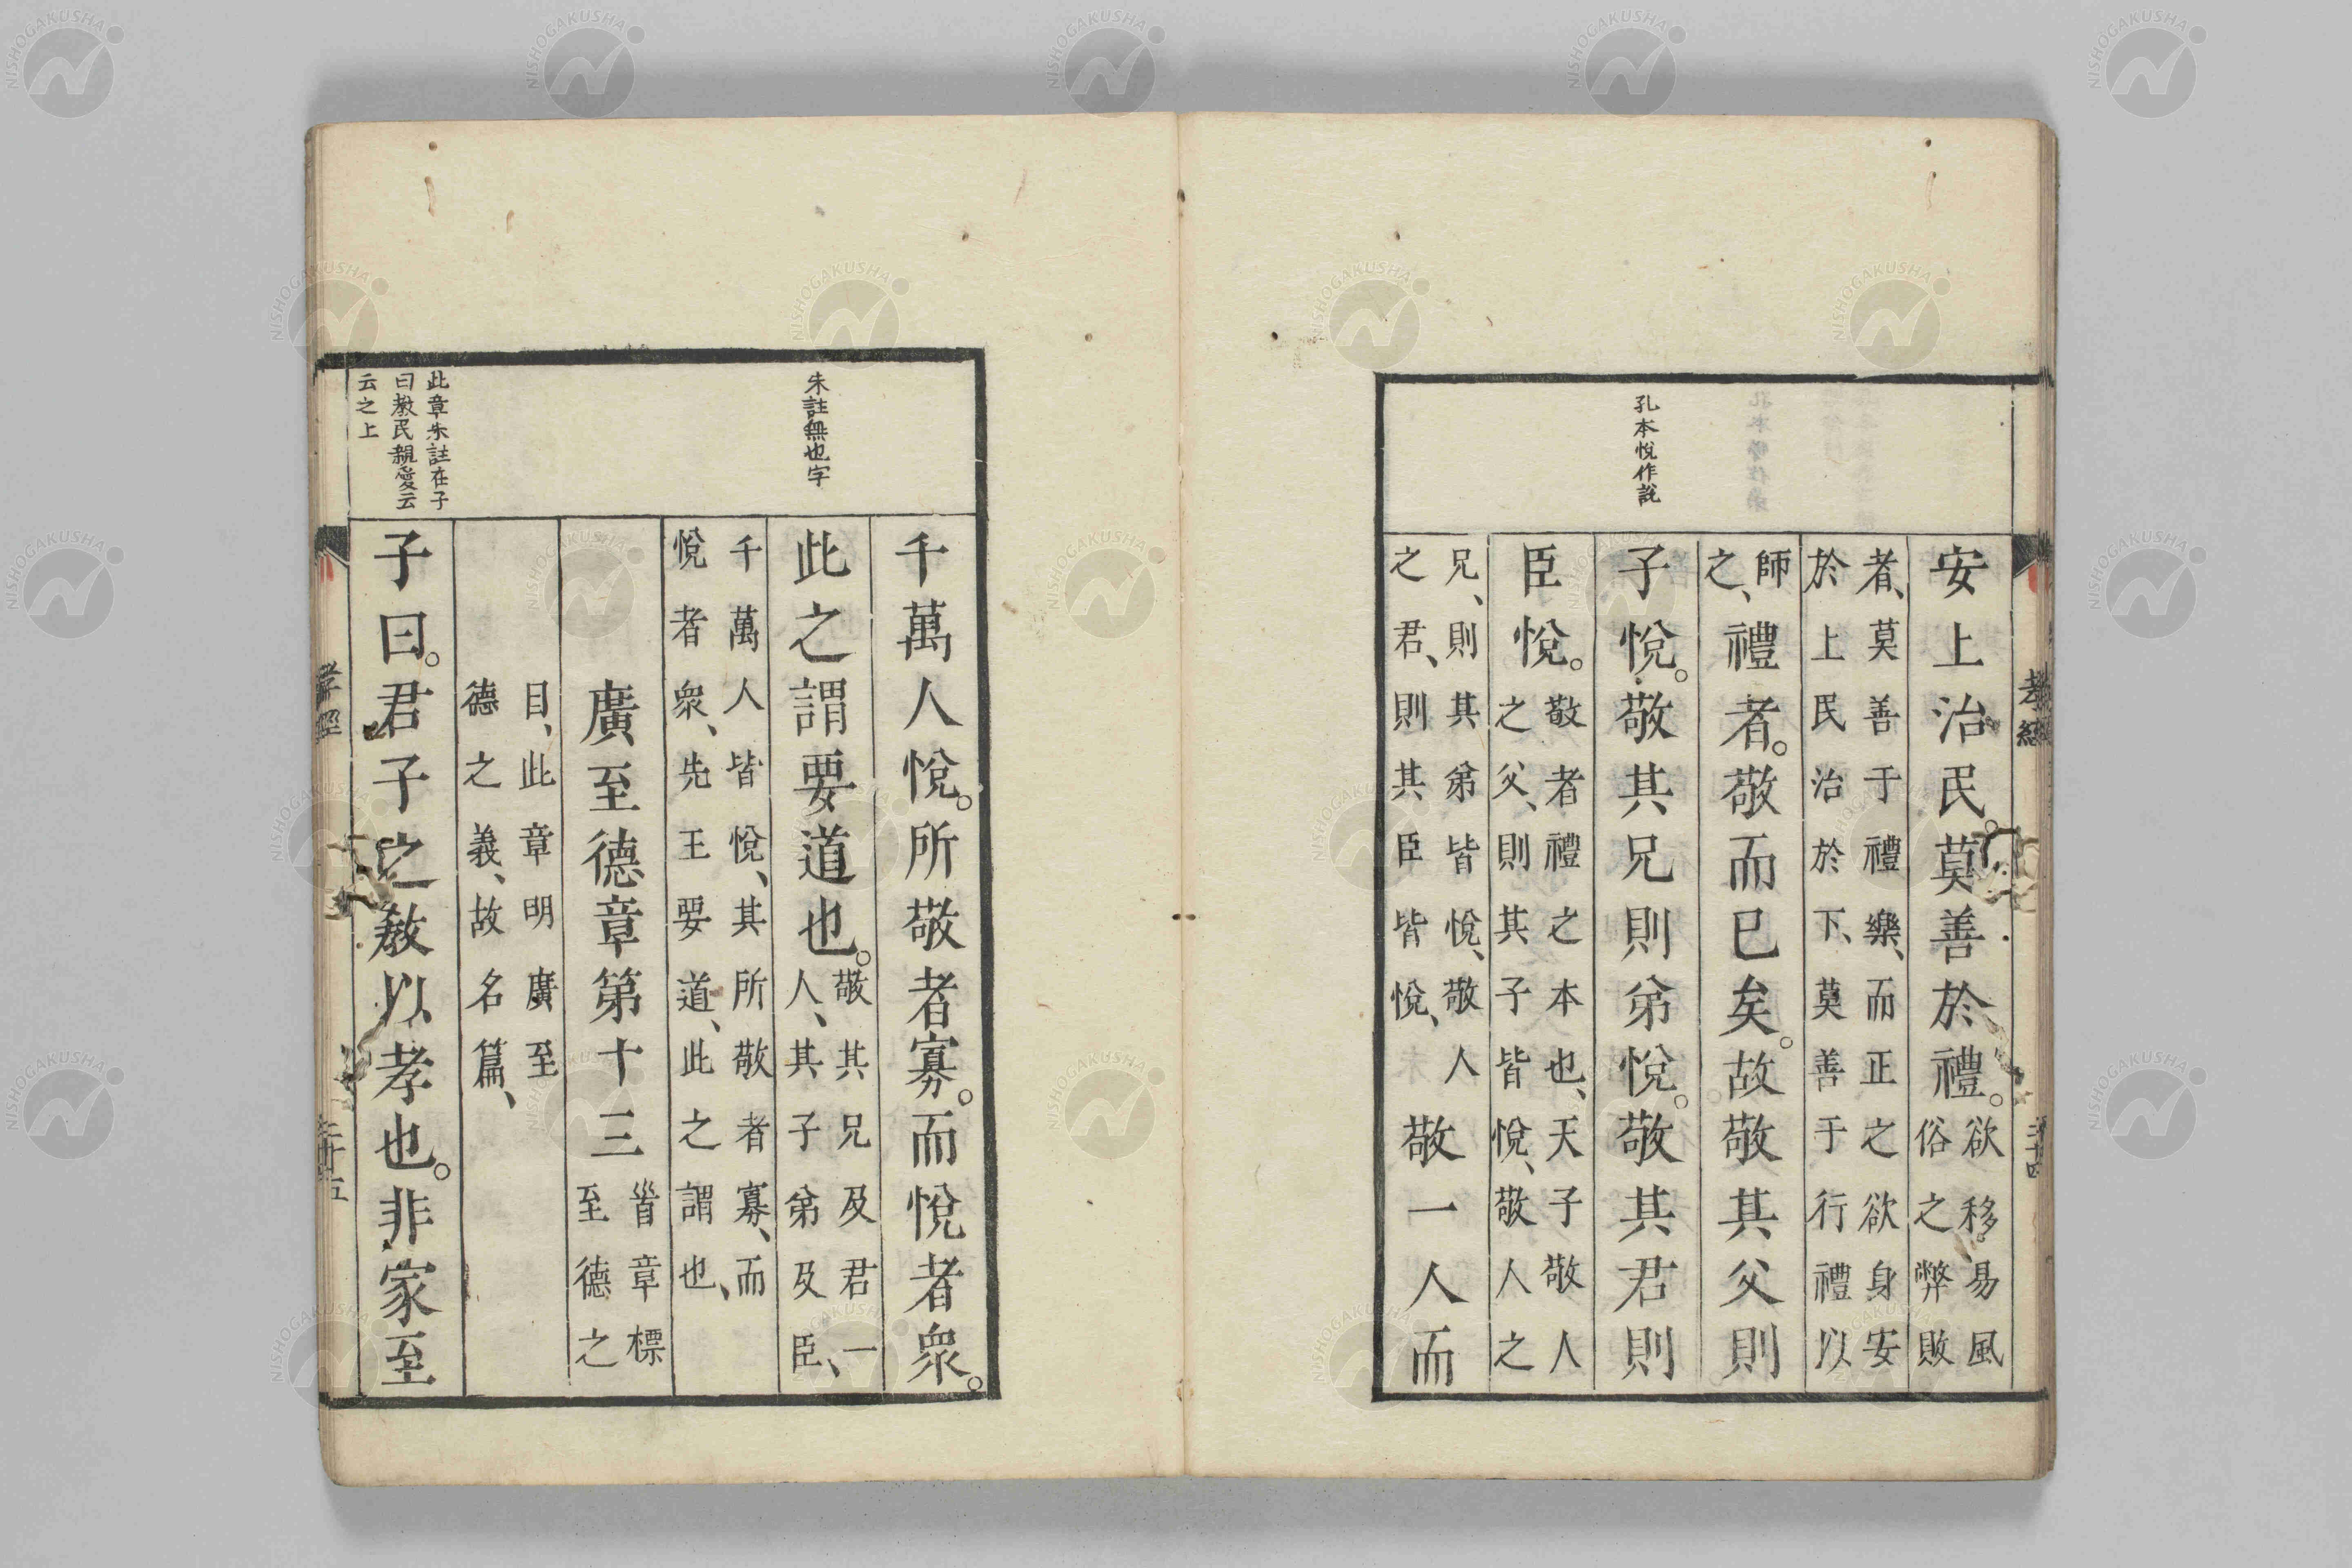 孝經
二十四
孔本悅作說
安上治民。莫善於禮。欲移、易風
俗之弊敗
者、莫善于禮樂、而正之欲身安
於上民治於下、莫善于行禮以
師
之、禮者。敬而已矣。故敬其父則
子悅。敬其兄則弟悅。敬其君則
臣悅。敬者禮之本也、天子敬人
之父、則其子皆悅、敬人之
兄、則其弟皆悅、敬人
之君、則其臣皆悅、敬一人而
朱註無也字
此章朱註在子
曰敎民親愛云
云之上
千萬人悅。所敬者寡。而悅者衆。
此之謂要道也。敬其兄及君一
人、其子弟及臣、
千萬人皆悅、其所敬者寡、而
悅者衆、先王要道、此之謂也、
廣至德章第十三首章標
至德之
目、此章明廣至
德之義、故名篇、
子曰。君子之敎以孝也。非家至
孝經
二十五
NISHOGAKUSHA